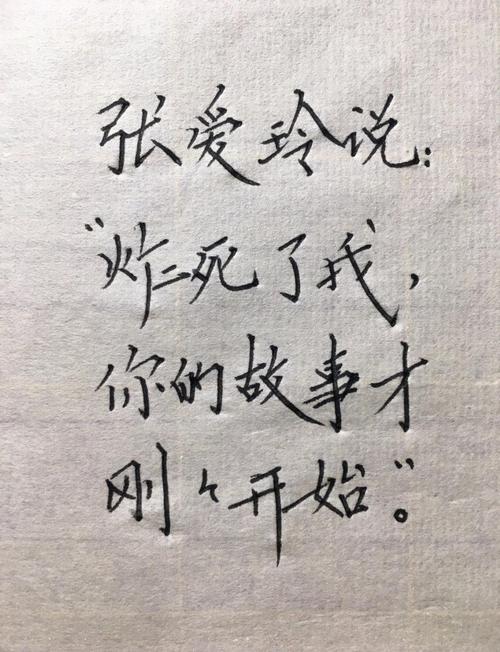 张爱玲说：
“炸死了我，
你的故事才
刚々开始”。